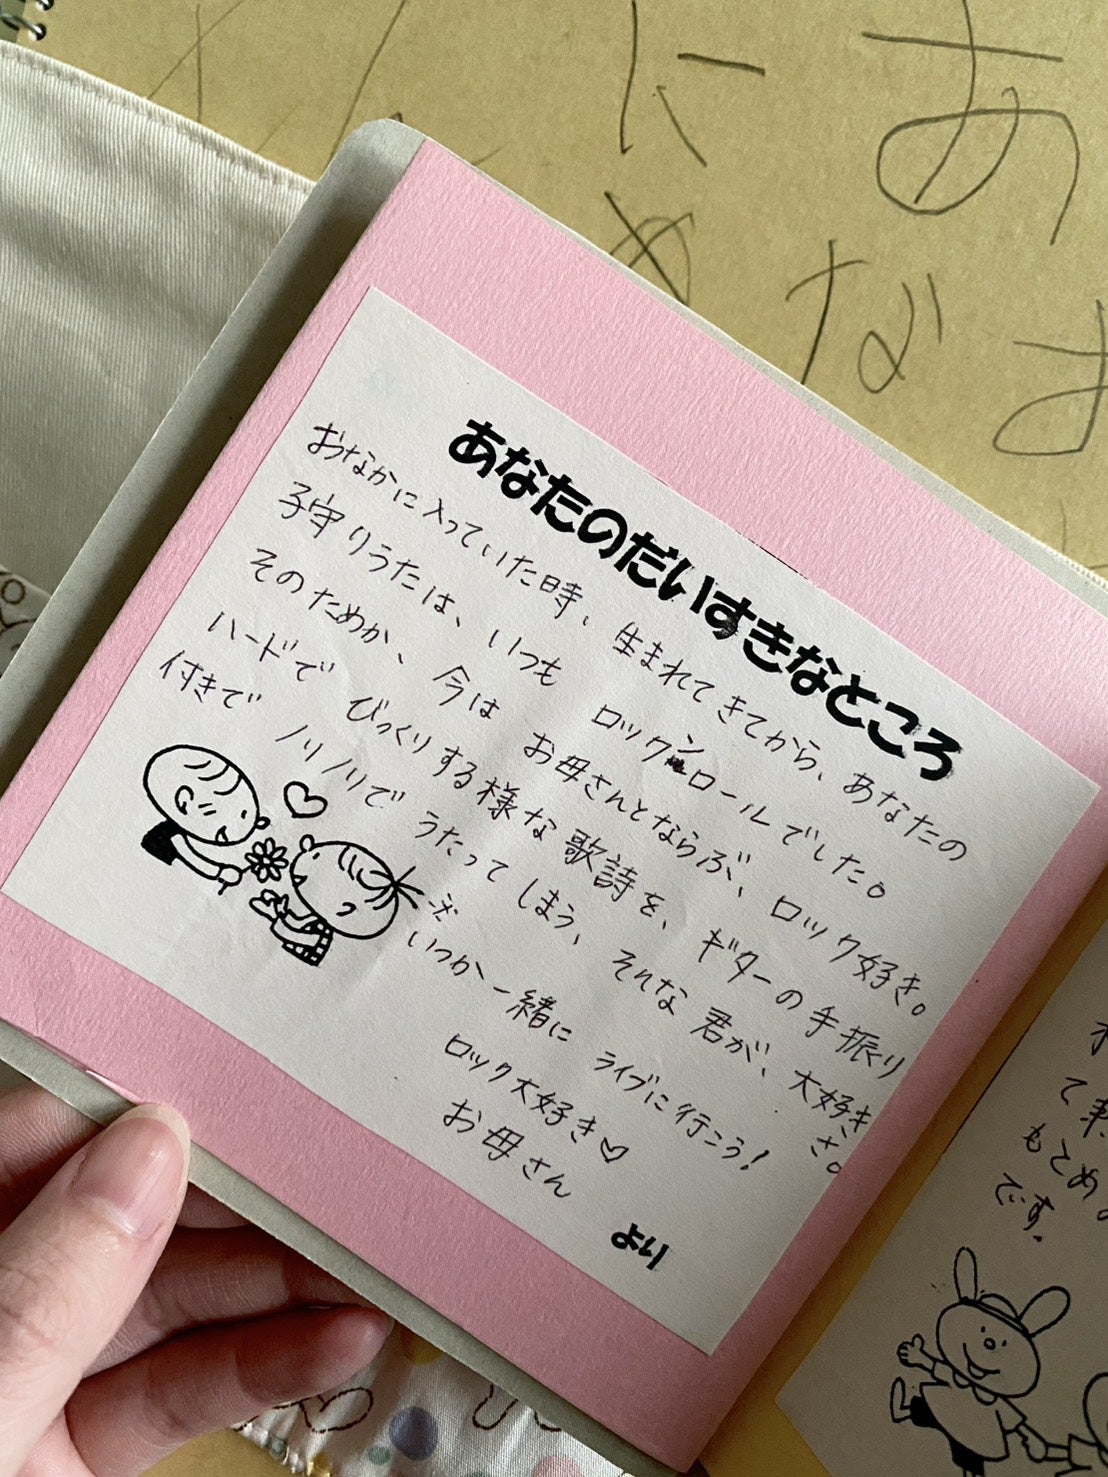 に
お
め
な
お
あなたのだいすきなところ
おなかに入っていた時、生まれてきてから、あなたの
子守りうたは、いつも ロックンロールでした。
そのためか、今は お母さんとならぶ、ロック好き。
ハードで びっくりする様な歌詩を、ギターの手振り
付きで ノリノリで うたって しまう、そんな 君が、大好き
さ。
いつか一緒に ライブに行こう!
ロック大好き♡
お母さん
より
て
もとめ
です。